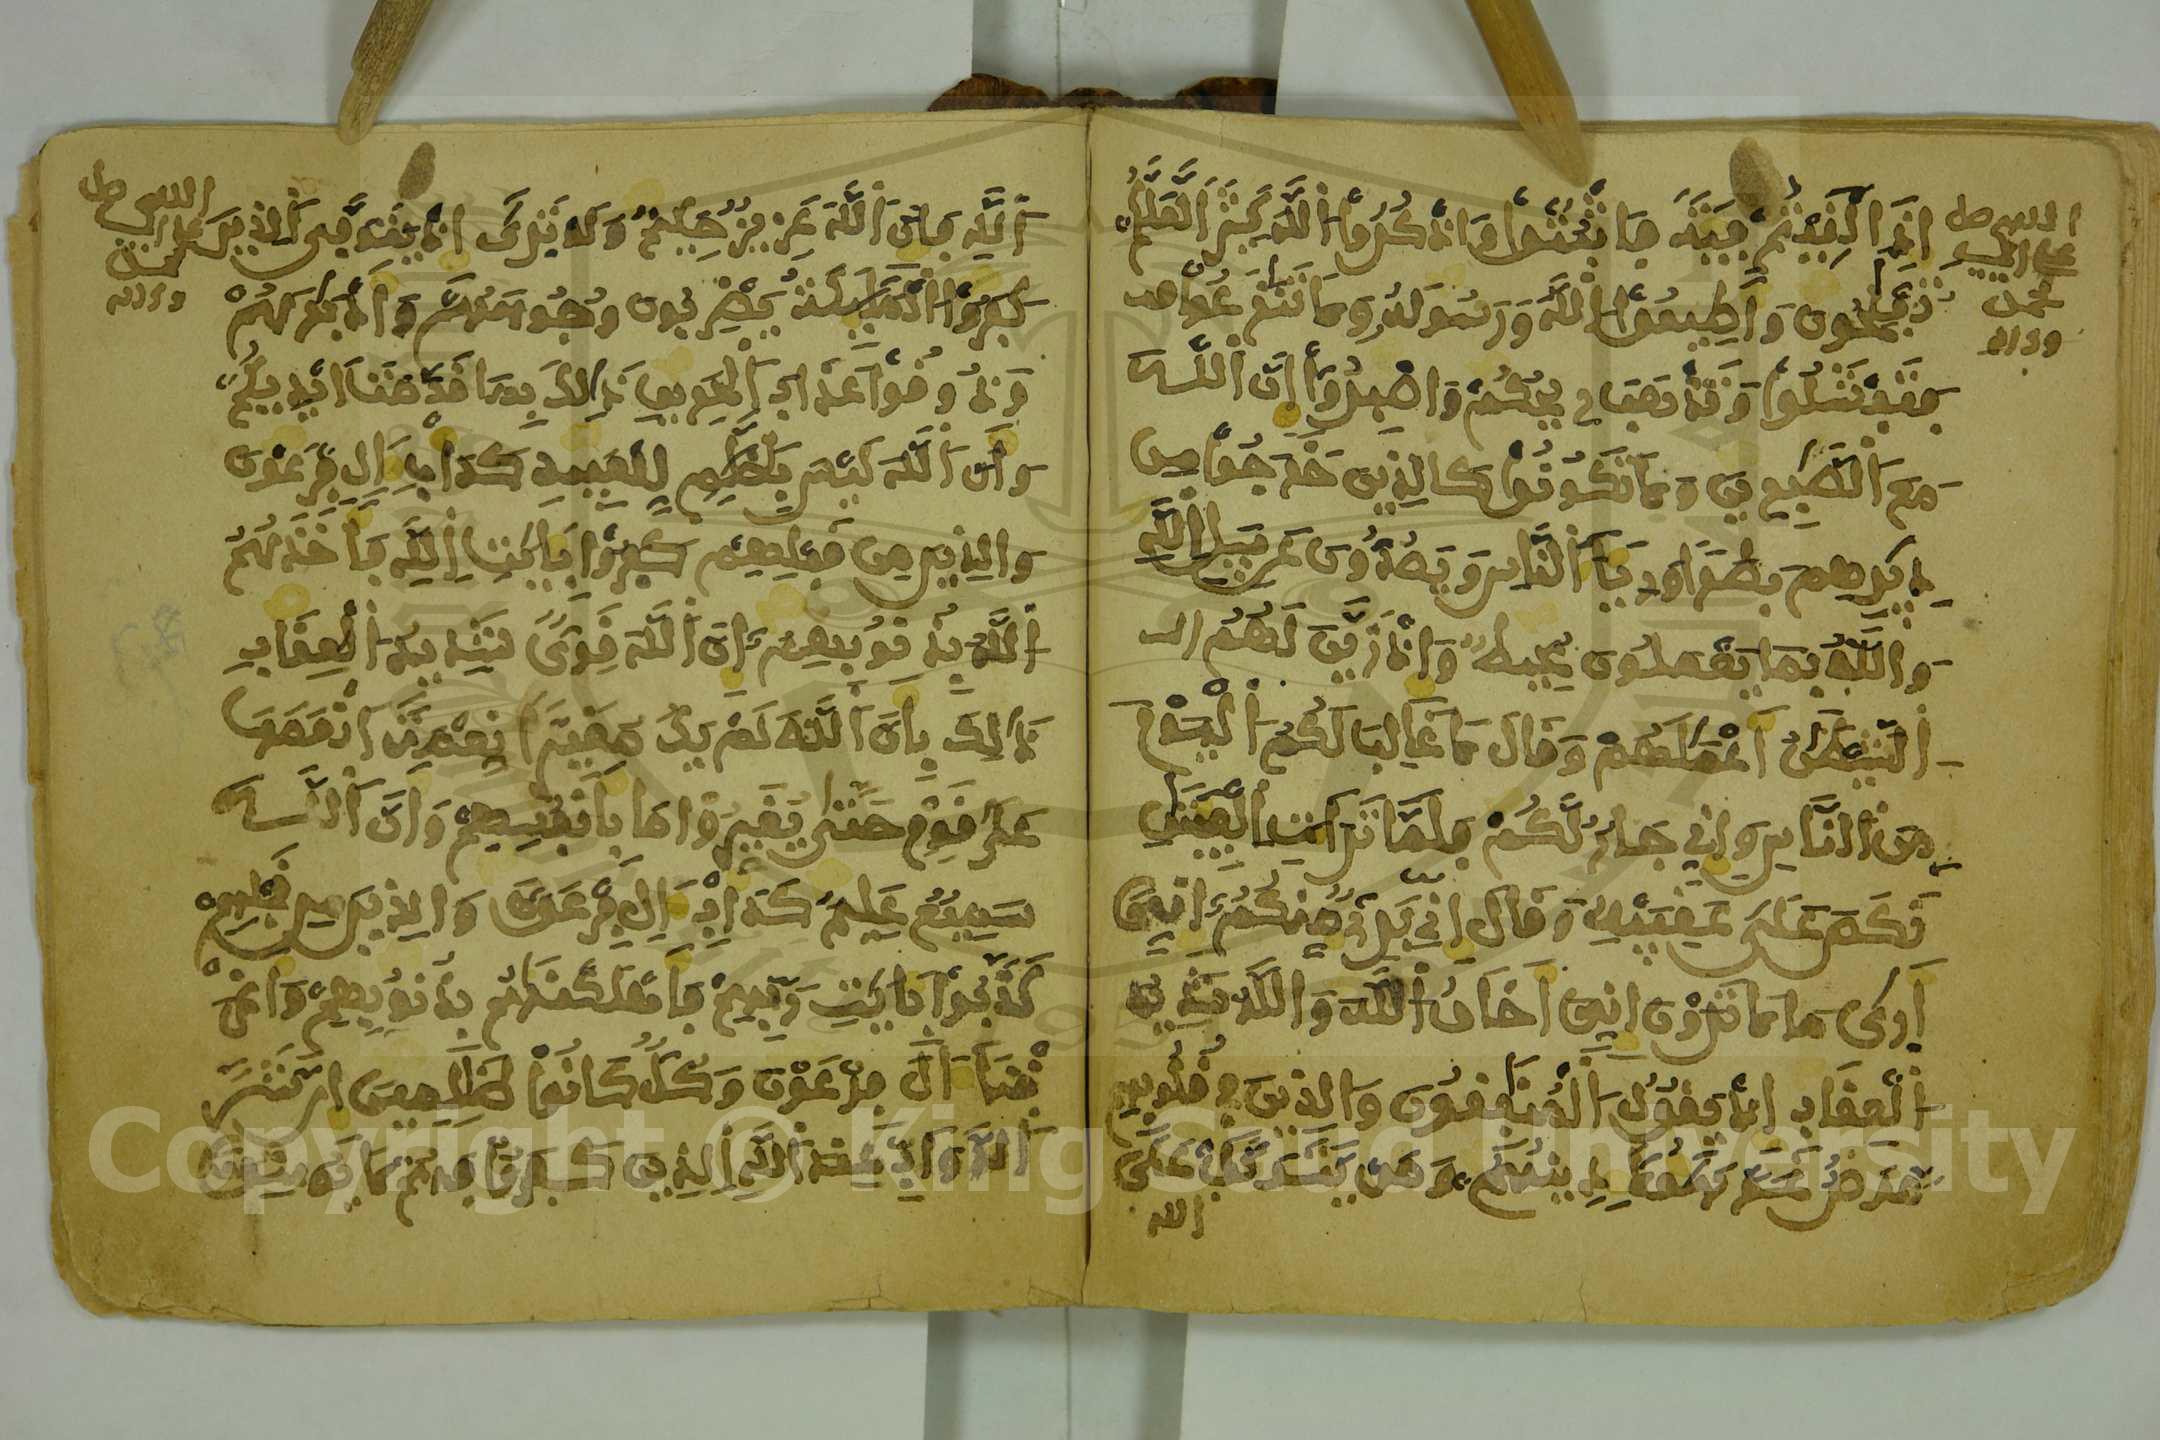 اللهم صل
على النبي
محمد
وءاله
إذا لقيتم فئة فاثبتوا واذكروا الله كثيرا لعلكم
تفلحون وأطيعوا الله ورسوله وما
فتفشلوا وتذهب ريحكم واصبروا إن الله
مع الصبرين ولا تكونوا كالذين خرجوا من
ديرهم بطرا ورئاء الناس ويصدون عن سبيل الله
والله بما يعملون محيط وإذ زين لهم
الشيطن أعملهم وقال لا غالب لكم اليوم
من الناس وإني جار لكم فلما تراءت الفئتن
نكص على عقبيه وقال إني بريء منكم إني
أرى ما لا ترون إني أخاف الله والله شديد
العقاب إذ يقول المنفقون والذين في قلوبهم
مرض غر هؤلاء دينهم ومن يتوكل على
الله
اللهم صل
على النبي
محمد
وءاله
الله فإن الله عزيز حكيم ولو ترى إذ يتوفى الذين
كفروا الملئكة يضربون وجوههم وأدبرهم
وذوقوا عذاب الحريق ذلك بما قدمت أيديكم
وأن الله ليس بظلم للعبيد كدأب ءال فرعون
والذين من قبلهم كفروا بئايت الله فأخذهم
الله بذنوبهم إن الله قوي شديد العقاب
ذلك بأن الله لم يك مغيرا نعمة أنعمها
على قوم حتى يغيروا ما بأنفسهم وأن الله
سميع عليم كدأب ءال فرعون والذين من قبلهم
كذبوا بئايت ربهم فأهلكنهم بذنوبهم وأغر
قنا ءال فرعون وكل كانوا ظلمين إن شر
الدواب عند الله الذين كفروا فهم لا يؤمنون
Copyright © King Saud University